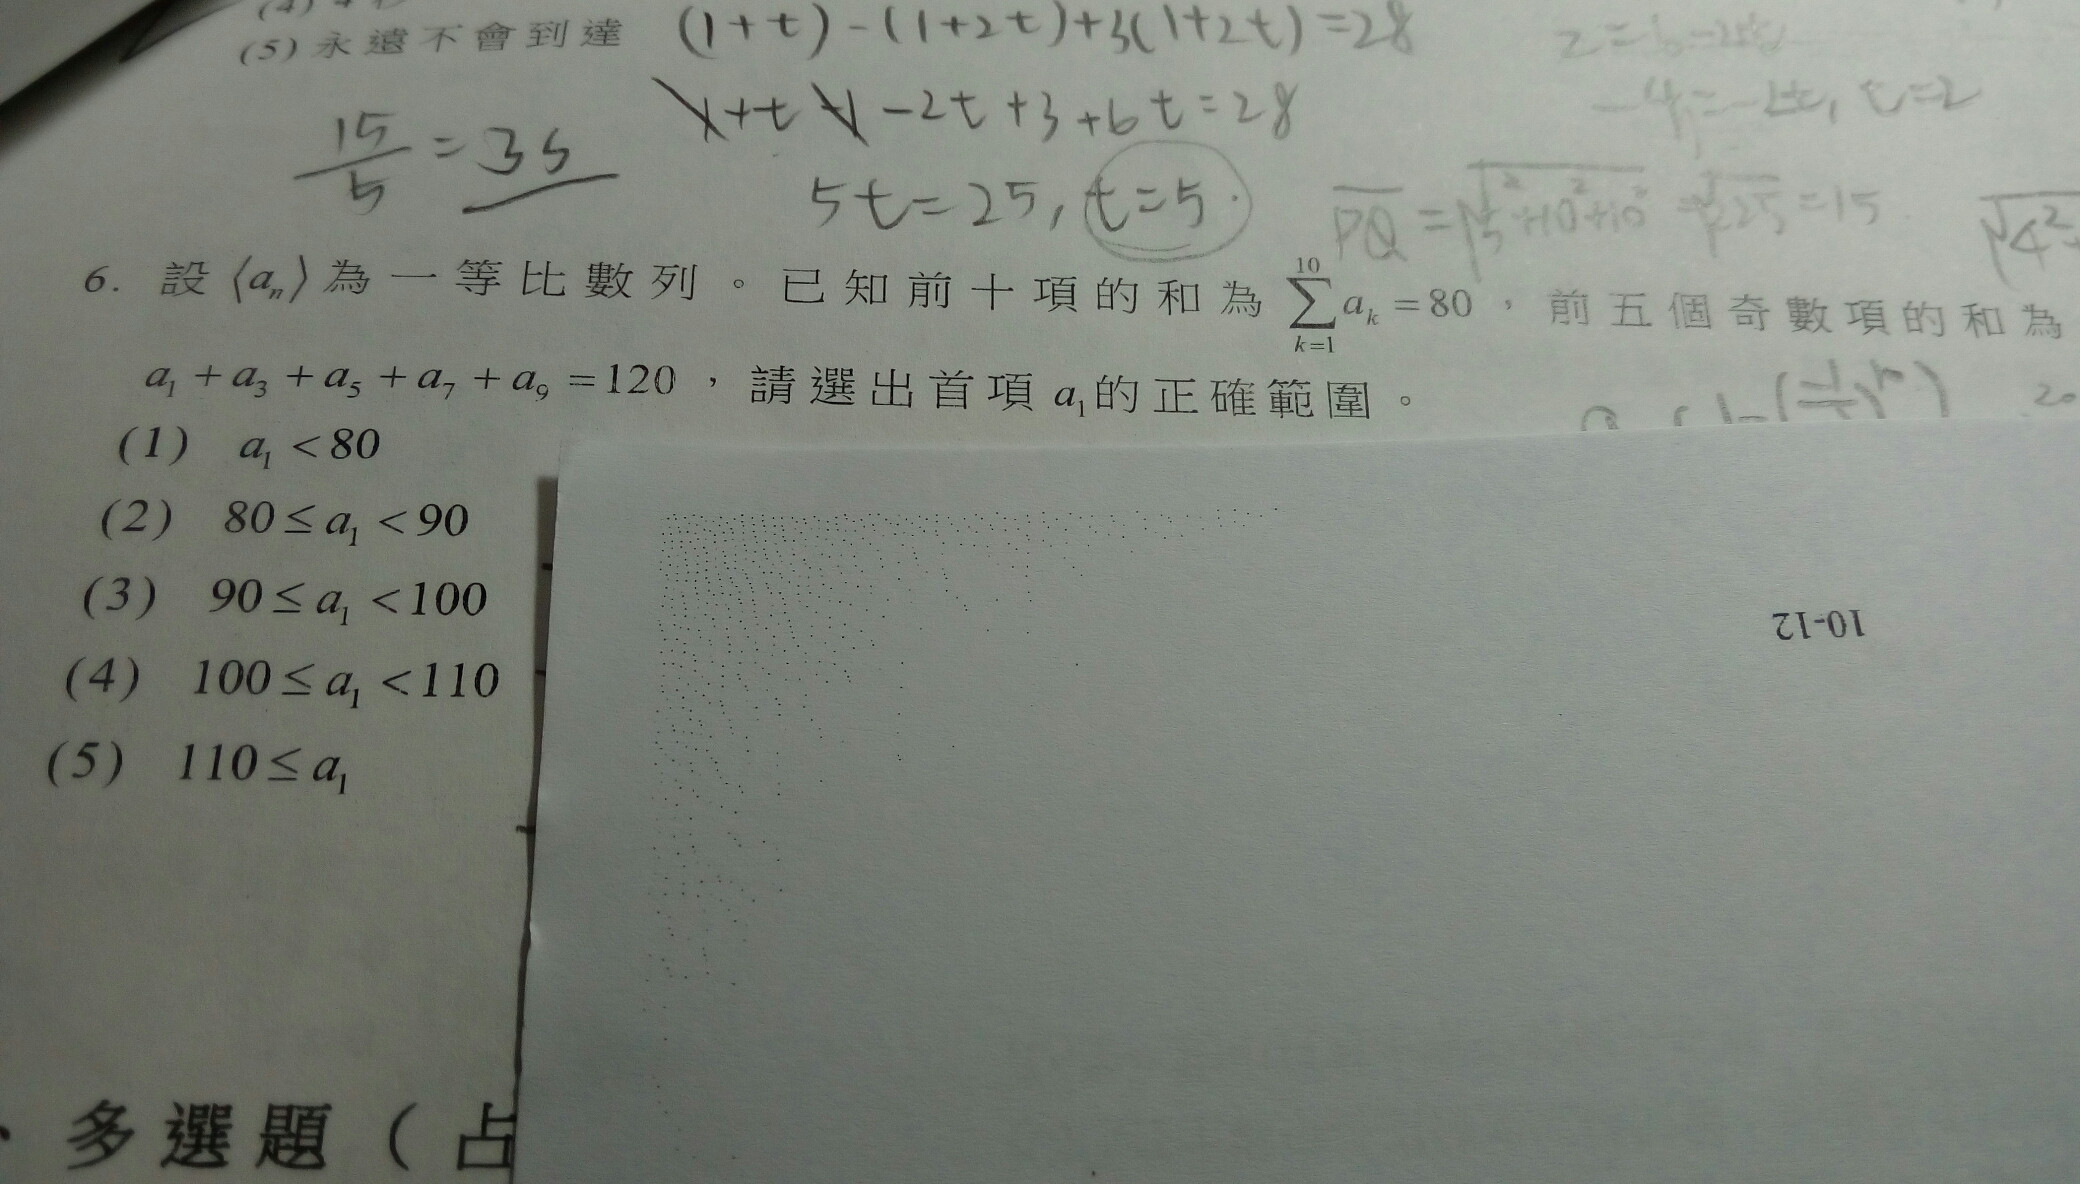 (5) 永遠不會到達 (1+t)-(1+2t)+3(1+2t)=28
1+t-1-2t+3+6t=28
-4=-2t, t=2
15/5=3s
5t=25, t=5.
PQ=√5²+10²+10²=√225=15
6. 設⟨aₙ⟩為一等比數列。已知前十項的和為∑_{k=1}^{10} aₖ=80,前五個奇數項的和為
a₁+a₃+a₅+a₇+a₉=120,請選出首項a₁的正確範圍。
(1) a₁<80
(2) 80≤a₁<90
(3) 90≤a₁<100
(4) 100≤a₁<110
(5) 110≤a₁
10-12
多選題(占